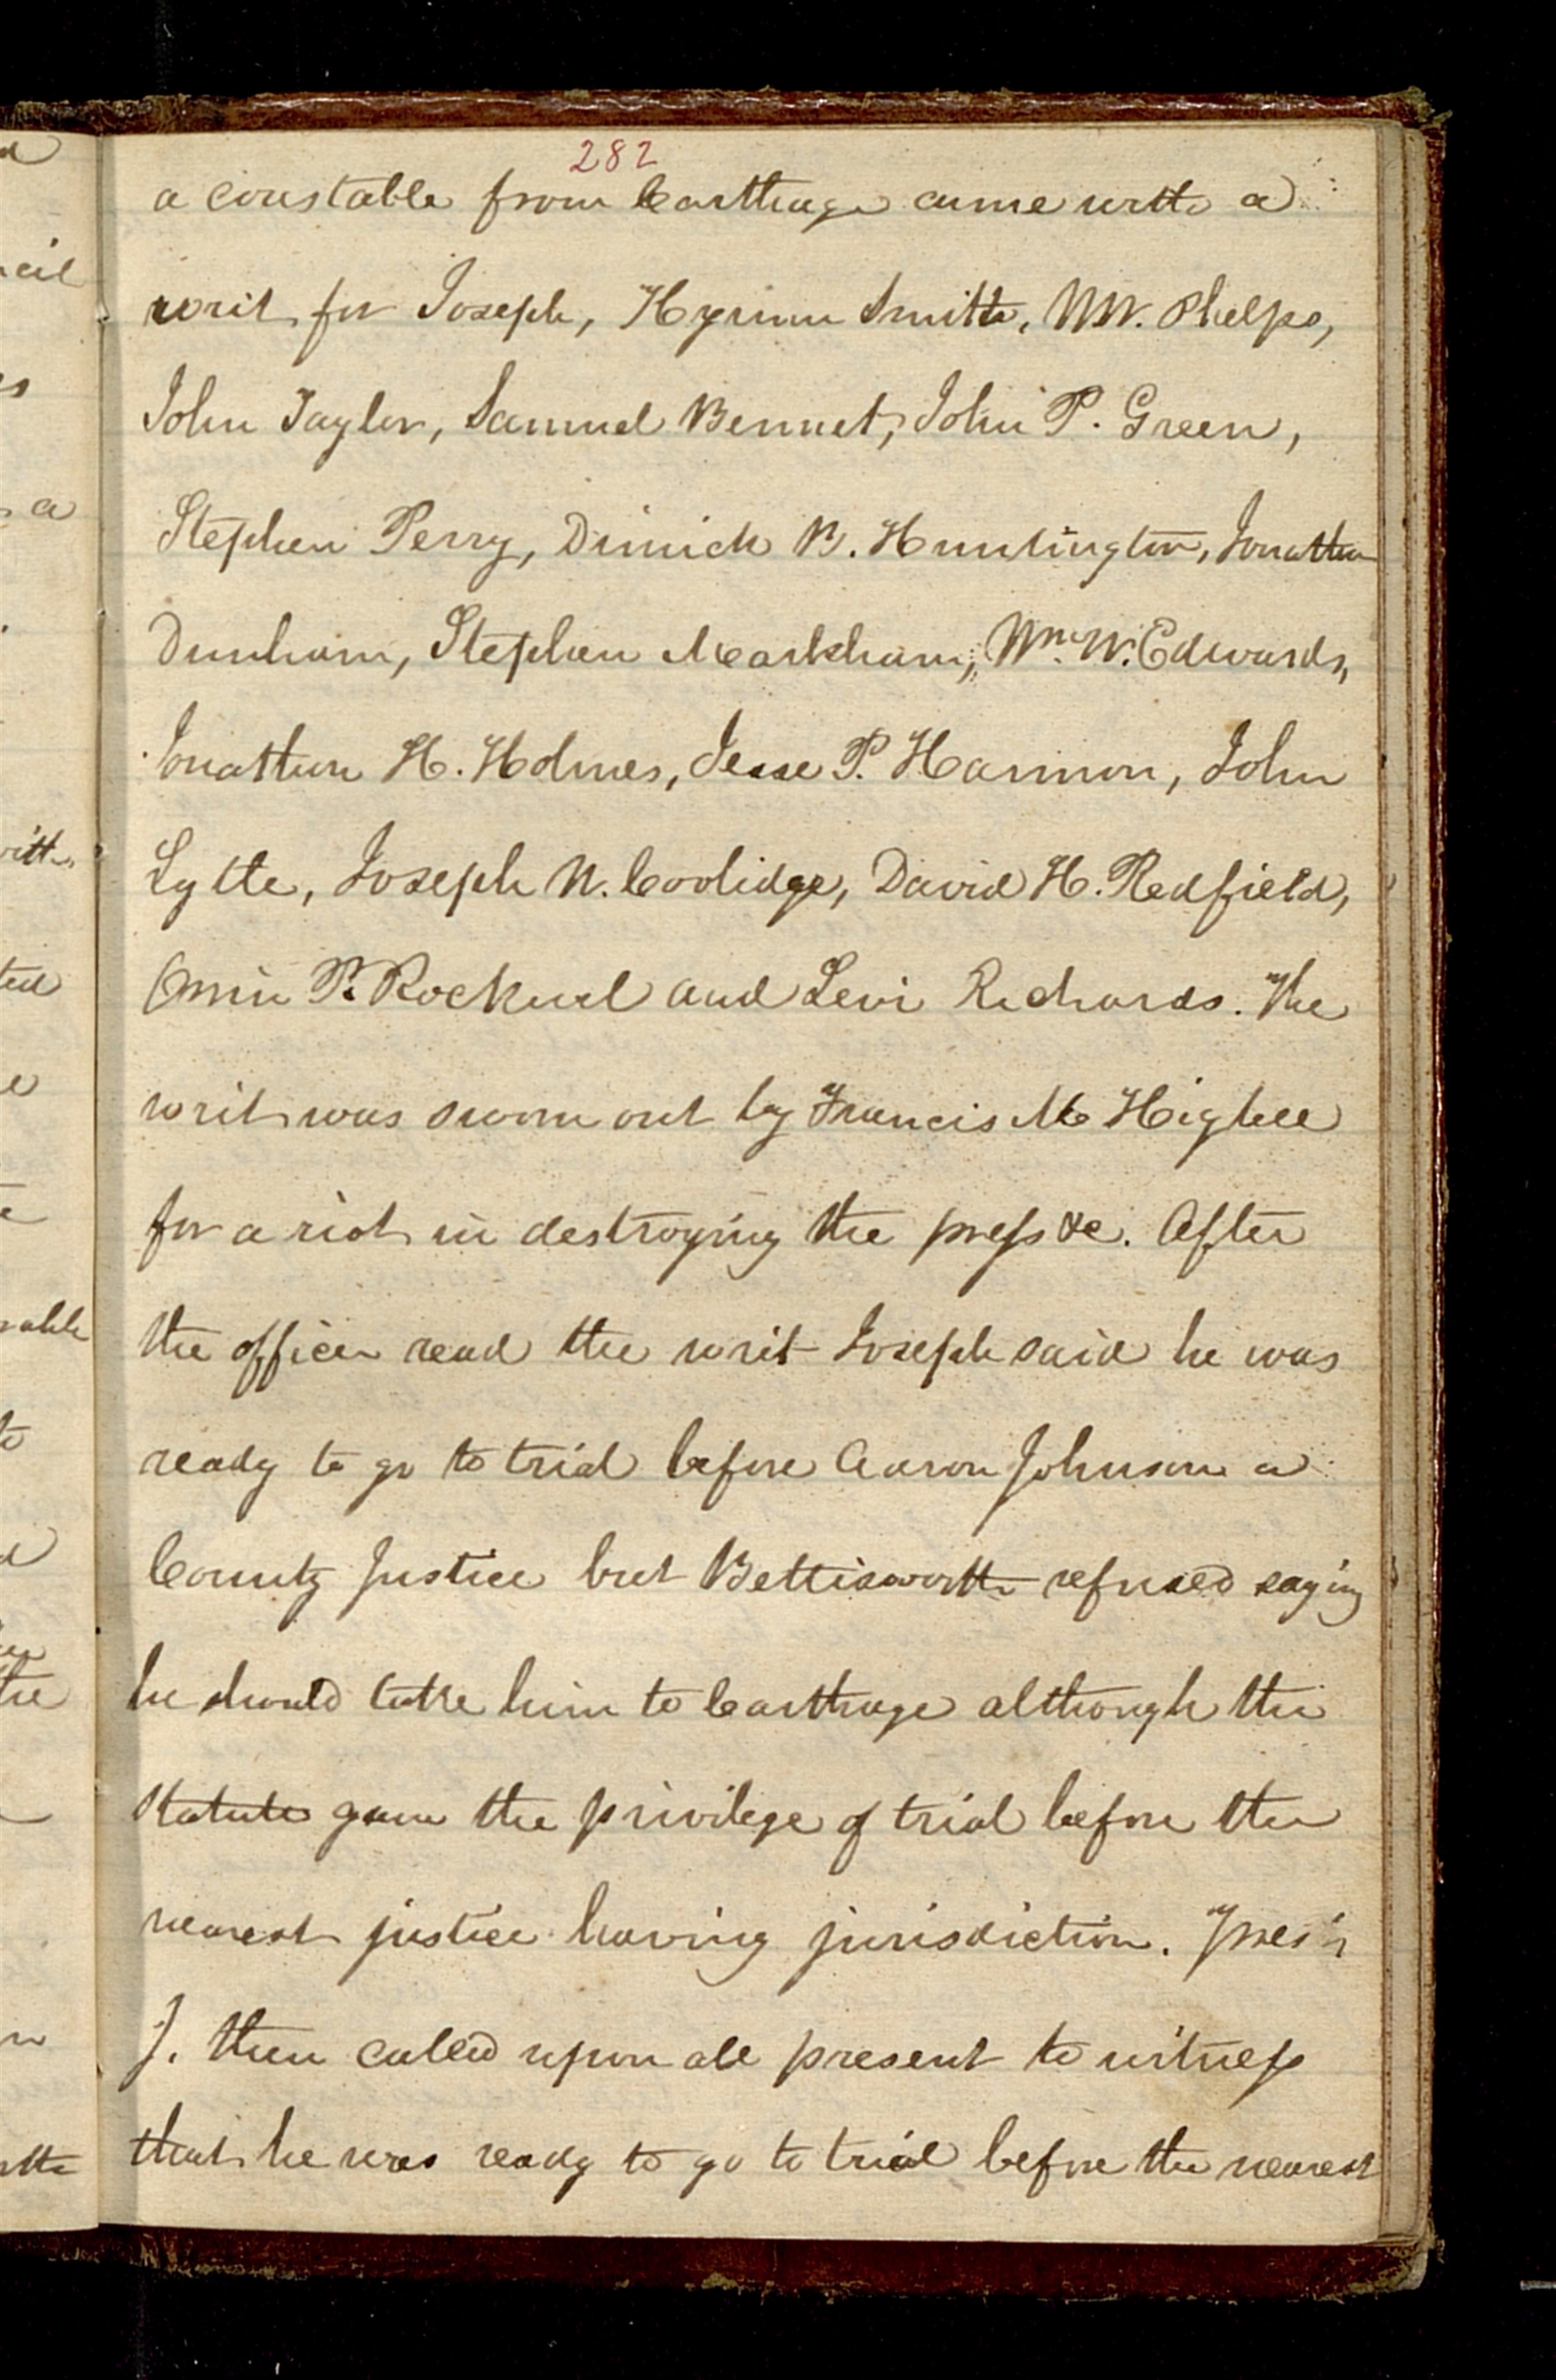 282
a constable from Carthage came with a
writ for Joseph, Hyrum Smith, W.W. Phelps,
John Taylor, Samuel Bennet, John P. Green,
Stephen Perry, Dimick B. Huntington, Jonathan
Dunham, Stephen Markham, Wm. W. Edwards,
Jonathan H. Holmes, Jesse P. Harmon, John
Lytle, Joseph W. Coolidge, David H. Redfield,
Orrin P. Rockwel and Levi Richards. The
writ was sworn out by Francis M Higbee
for a riot in destroying the press &c. After
the officer read the writ Joseph said he was
ready to go to trial before Aaron Johnson a
County Justice but Bettisworth refused saying
he should take him to Carthage although the
Statute gave the privilege of trial before the
nearest justice having jurisdiction. Pres't
J. then called upon all present to witness
that he was ready to go to trial before the nearest
cil
es
a
with
ted
e
able
to
d
the
n